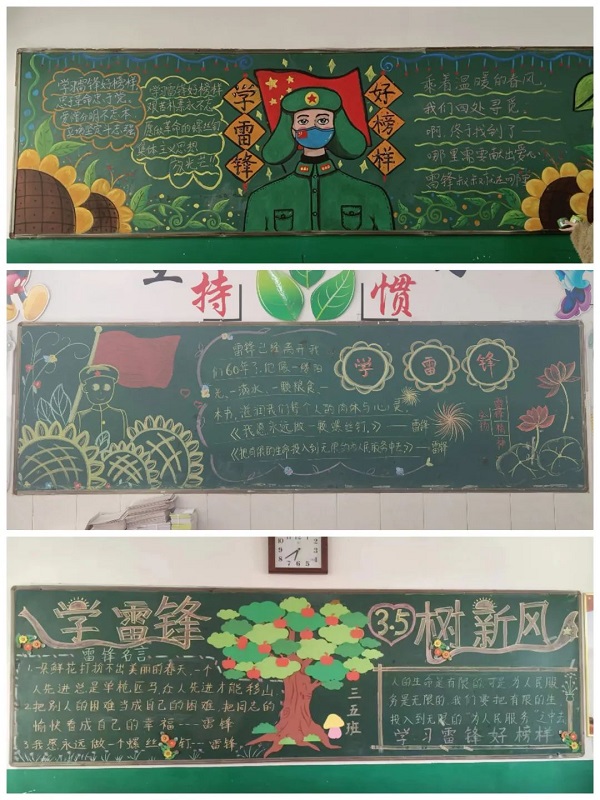 学习雷锋好榜样
忠于革命忠于党
爱憎分明不忘本
立场坚定斗志强
学习雷锋好榜样
艰苦朴素永不忘
愿做革命的螺丝钉
集体主义思想
放光芒
学雷锋
好榜样
乘着温暖的春风,
我们四处寻觅。
啊,终于找到了——
哪里需要献出爱心,
雷锋叔叔就在哪里
持
惯
雷锋已经离开我
们60年了,他像一缕阳
光,一滴水,一颗粮食,一
本书,滋润我们每个人的肉体与心灵。
《我愿永远做一颗螺丝钉》——雷锋
《把有限的生命投入到无限的为人民服务中去》——雷锋
学雷锋
学雷锋
3.5
树新风
雷锋名言
1.一朵鲜花打扮不出美丽的春天,一个
人先进总是单枪匹马,众人先进才能移山
2.把别人的困难当成自己的困难,把同志的
愉快看成自己的幸福---雷锋
3.我愿永远做一个螺丝钉---雷锋
三五班
人的生命是有限的,可是,为人民服
务是无限的,我们要把有限的生
投入到无限的"为人民服务"之中去
学习雷锋好榜样